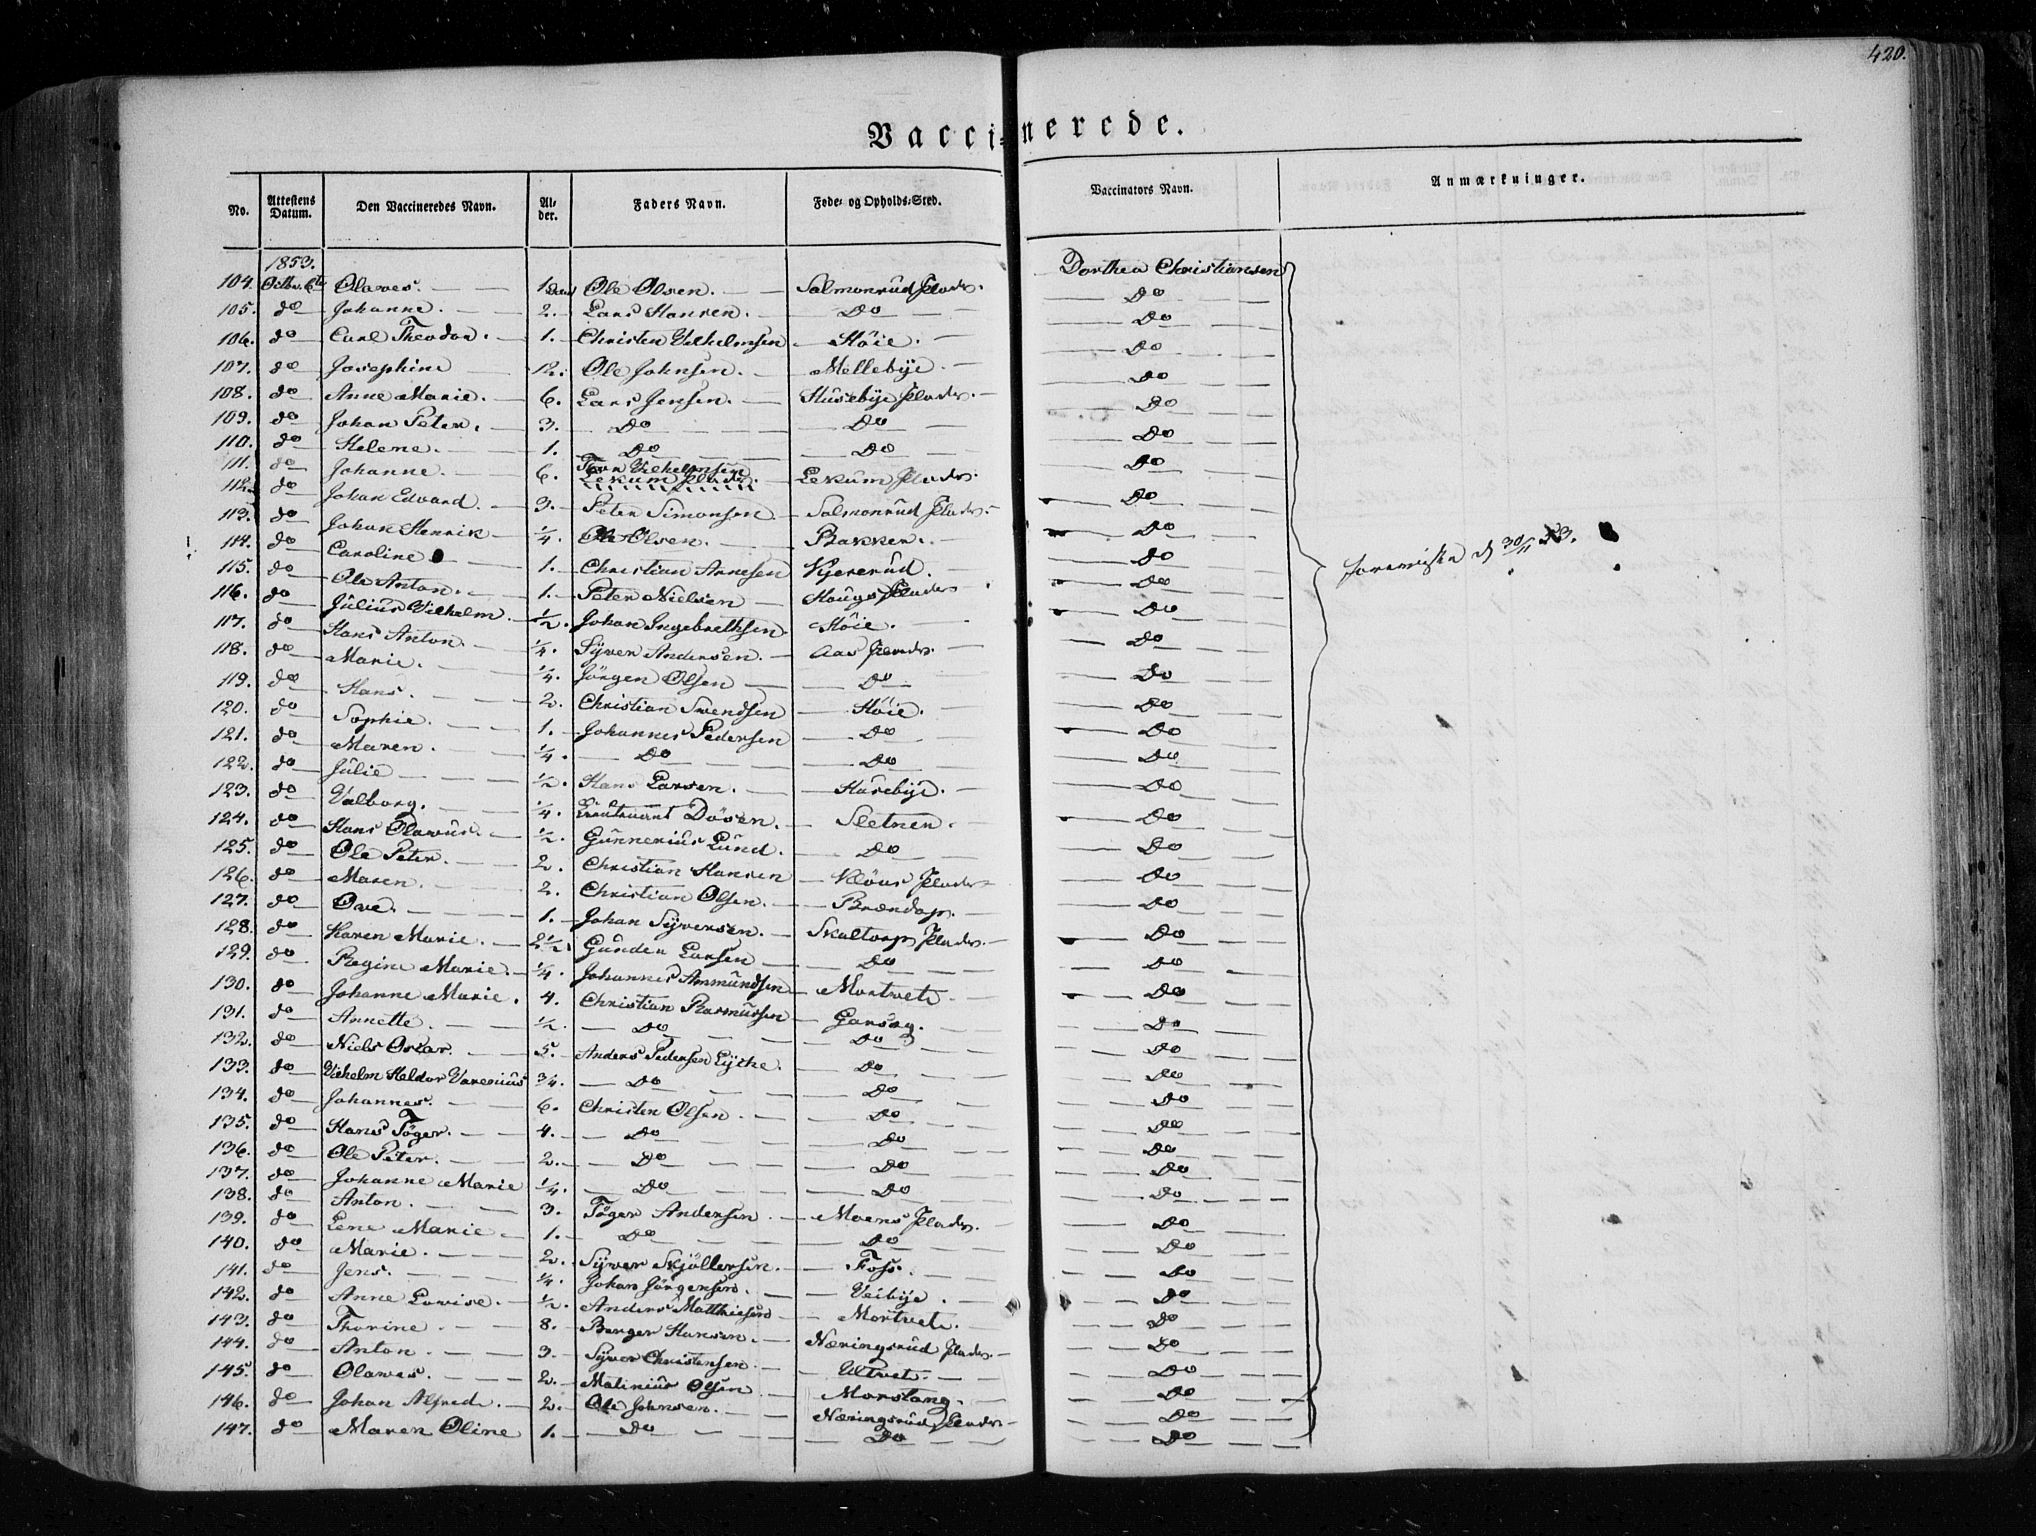 420.
Vaccinerede.
No. Attestens Datum. Den Vaccineredes Navn. Alder. Faders Navn. Føde- og Opholds-Sted. Vaccinators Navn. Anmærkninger.
1853.
104. Octbr. 6te Olaves. 1 Ole Olsen. Salmonrud Plads. Dorthea Christiansen
105. do Johanne. 2. Lars Hansen. Do Do
106. do Carl Theodor. 1. Christen Vilhelmsen Höie. Do
107. do Josephine 12. Ole Johnsen. Mellebye. Do
108. do Anne Marie. 6. Lars Jensen. Husebye Plads. Do
109. do Johan Peter. 3. Do Do Do
110. do Helene. 1. Do Do Do
111. do Johanne. 6. Vilhelmsen Lekum Plads. Lekum Plads. Do
112. do Johan Edvard. 3. Peter Simonsen Salmonrud Plads. Do
113. do Johan Henrik 1/4. Ole Olsen. Bakken. Do
114. do Caroline 1. Christian Arnesen Kjererud. Do foreviste d 30/11 53.
115. do Ole Anton. 1. Peter Nielsen Hougs Plads Do
116. do Julius Vilhelm. 1/2. Johan Ingebrethsen. Höie. Do
117. do Hans Anton. 1/4. Syver Andersen. Aas Plads. Do
118. do Marie. 1/4. Jörgen Olsen Do Do
119. do Hans. 2. Christian Svendsen Höie. Do
120. do Sophie. 1. Johannes Pedersen Do Do
121. do Maren. 1/4. Do Do Do
122. do Julie 1/2. Hans Larsen. Husebye. Do
123. do Valborg. 1/4. Lieutenant Döven. Sletner. Do
124. do Hans Olavus. 1/2. Gunnerius Lund. Do Do
125. do Ole Peter. 2. Christian Hansen Klöus Plads Do
126. do Maren. 2. Christian Olsen. Brændop. Do
127. do Ove. 1. Johan Syversen. Skaltorp Plads. Do
128. do Karen Marie. 2 1/2. Gunder Larsen Do Do
129. do Regine Marie. 1/4. Johannes Ammundsen Mortvete Do
130. do Johanne Marie. 4. Christian Rasmussen Garseg. Do
131. do Annette. 1/2. Do Do Do
132. do Niels Oscar. 5. Anders Pedersen Lycke. Do Do
133. do Vilhelm Heldor Varenius 3/4. Do Do Do
134. do Johannes. 6. Christen Olsen. Do Do
135. do Hans Töger. 4. Do Do Do
136. do Ole Peter. 2. Do Do Do
137. do Johanne Marie 1/4. Do Do Do
138. do Anton. 3. Töger Andersen. Moens Plads. Do
139. do Lene Marie 1. Do Do Do
140. do Marie. 2. Syver Skjöllersen. Foss. Do
141. do Jens. 1/4. Johan Jörgensen. Veibye. Do
142. do Anne Lovise. 1/2. Anders Matthiesen Mortvete. Do
143. do Thorine. 8. Berger Hansen. Næringsrud Plads. Do
144. do Anton. 3. Syver Christensen Ultvet. Do
145. do Olaves. 2. Matinius Olsen Morstang. Do
146. do Johan Alfred. 2. Ole Johnsen. Næringsrud Plads Do
147. do Maren Oline 1. Do Do Do